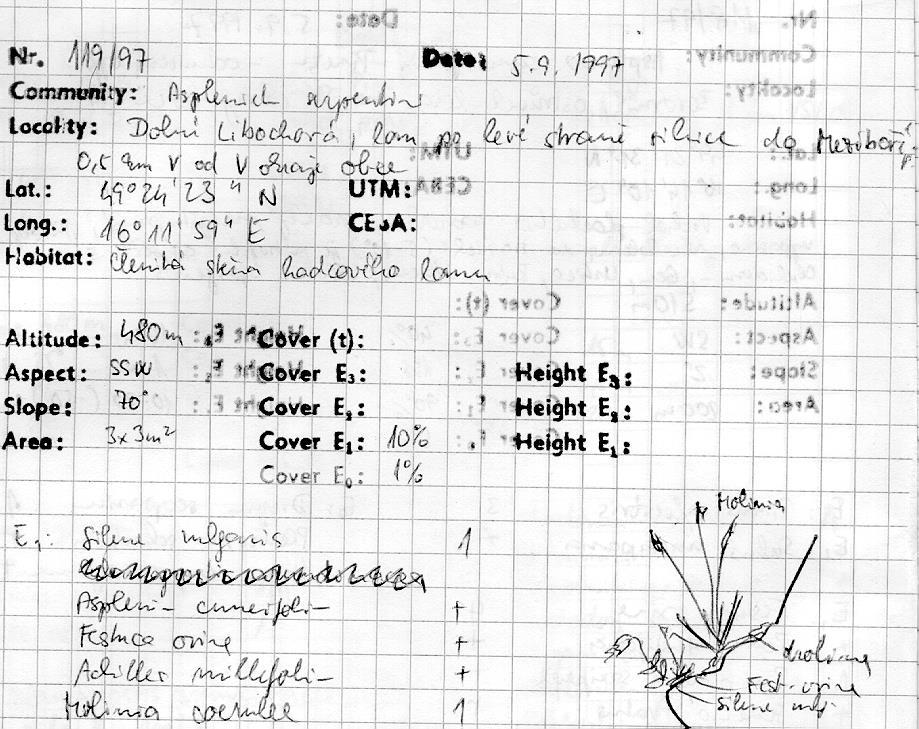 Nr. 119/97 Date: 5.9.1997
Community: Asplenieta serpentini
Locality: Dolní Libochová, lom po levé straně silnice do Meziboří
0,5 km V od V okraje obce
Lat.: 49°24'23" N UTM:
Long.: 16°11'59" E CEBA:
Habitat: Členitá stěna hadcového lomu
Altitude: 480m Cover (t):
Aspect: SSW Cover E₃: Height E₃:
Slope: 70° Cover E₂: Height E₂:
Area: 3x3m² Cover E₁: 10% Height E₁:
Cover E₀: 1%
Molinia
E₁: Silene vulgaris 1
Aspleni- cuneifoli- +
Festuca ovina +
Achillea millefoli- +
Molinia coerulea 1
Fest. ovina
Silene vulg.